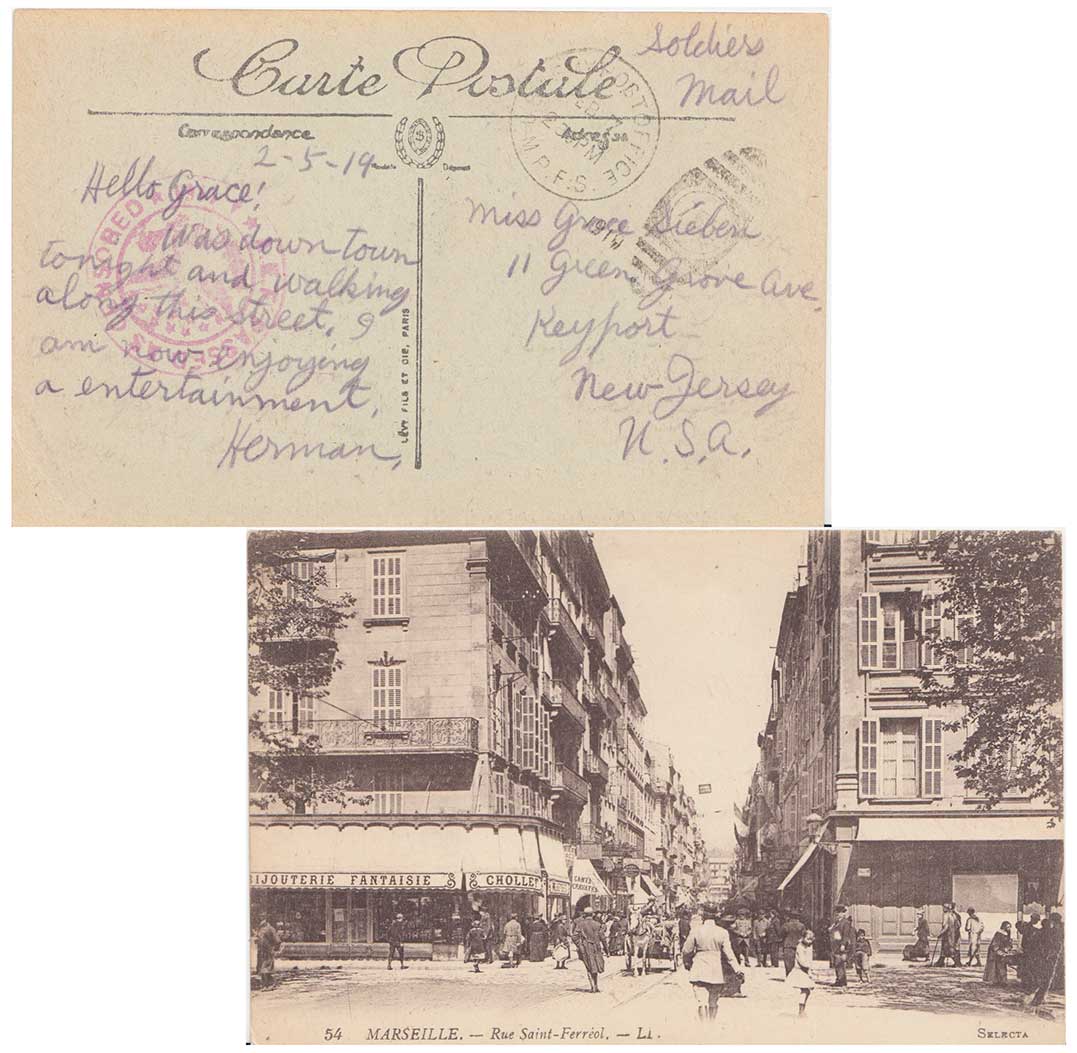 Carte Postale
Soldiers
Mail
Correspondance
Adresse
POST OFFICE
M.P.E.S.
2-5-19
Hello Grace!
Was down town
tonight and walking
along this street. I
am now enjoying
a entertainment.
Herman.
LÉVY FILS ET CIE, PARIS
Miss Grace Sieben
11 Green Grove Ave.
Keyport
New Jersey
U.S.A.
BIJOUTERIE FANTAISIE
CHOLLET
54 MARSEILLE. — Rue Saint-Ferréol. — LL.
SELECTA